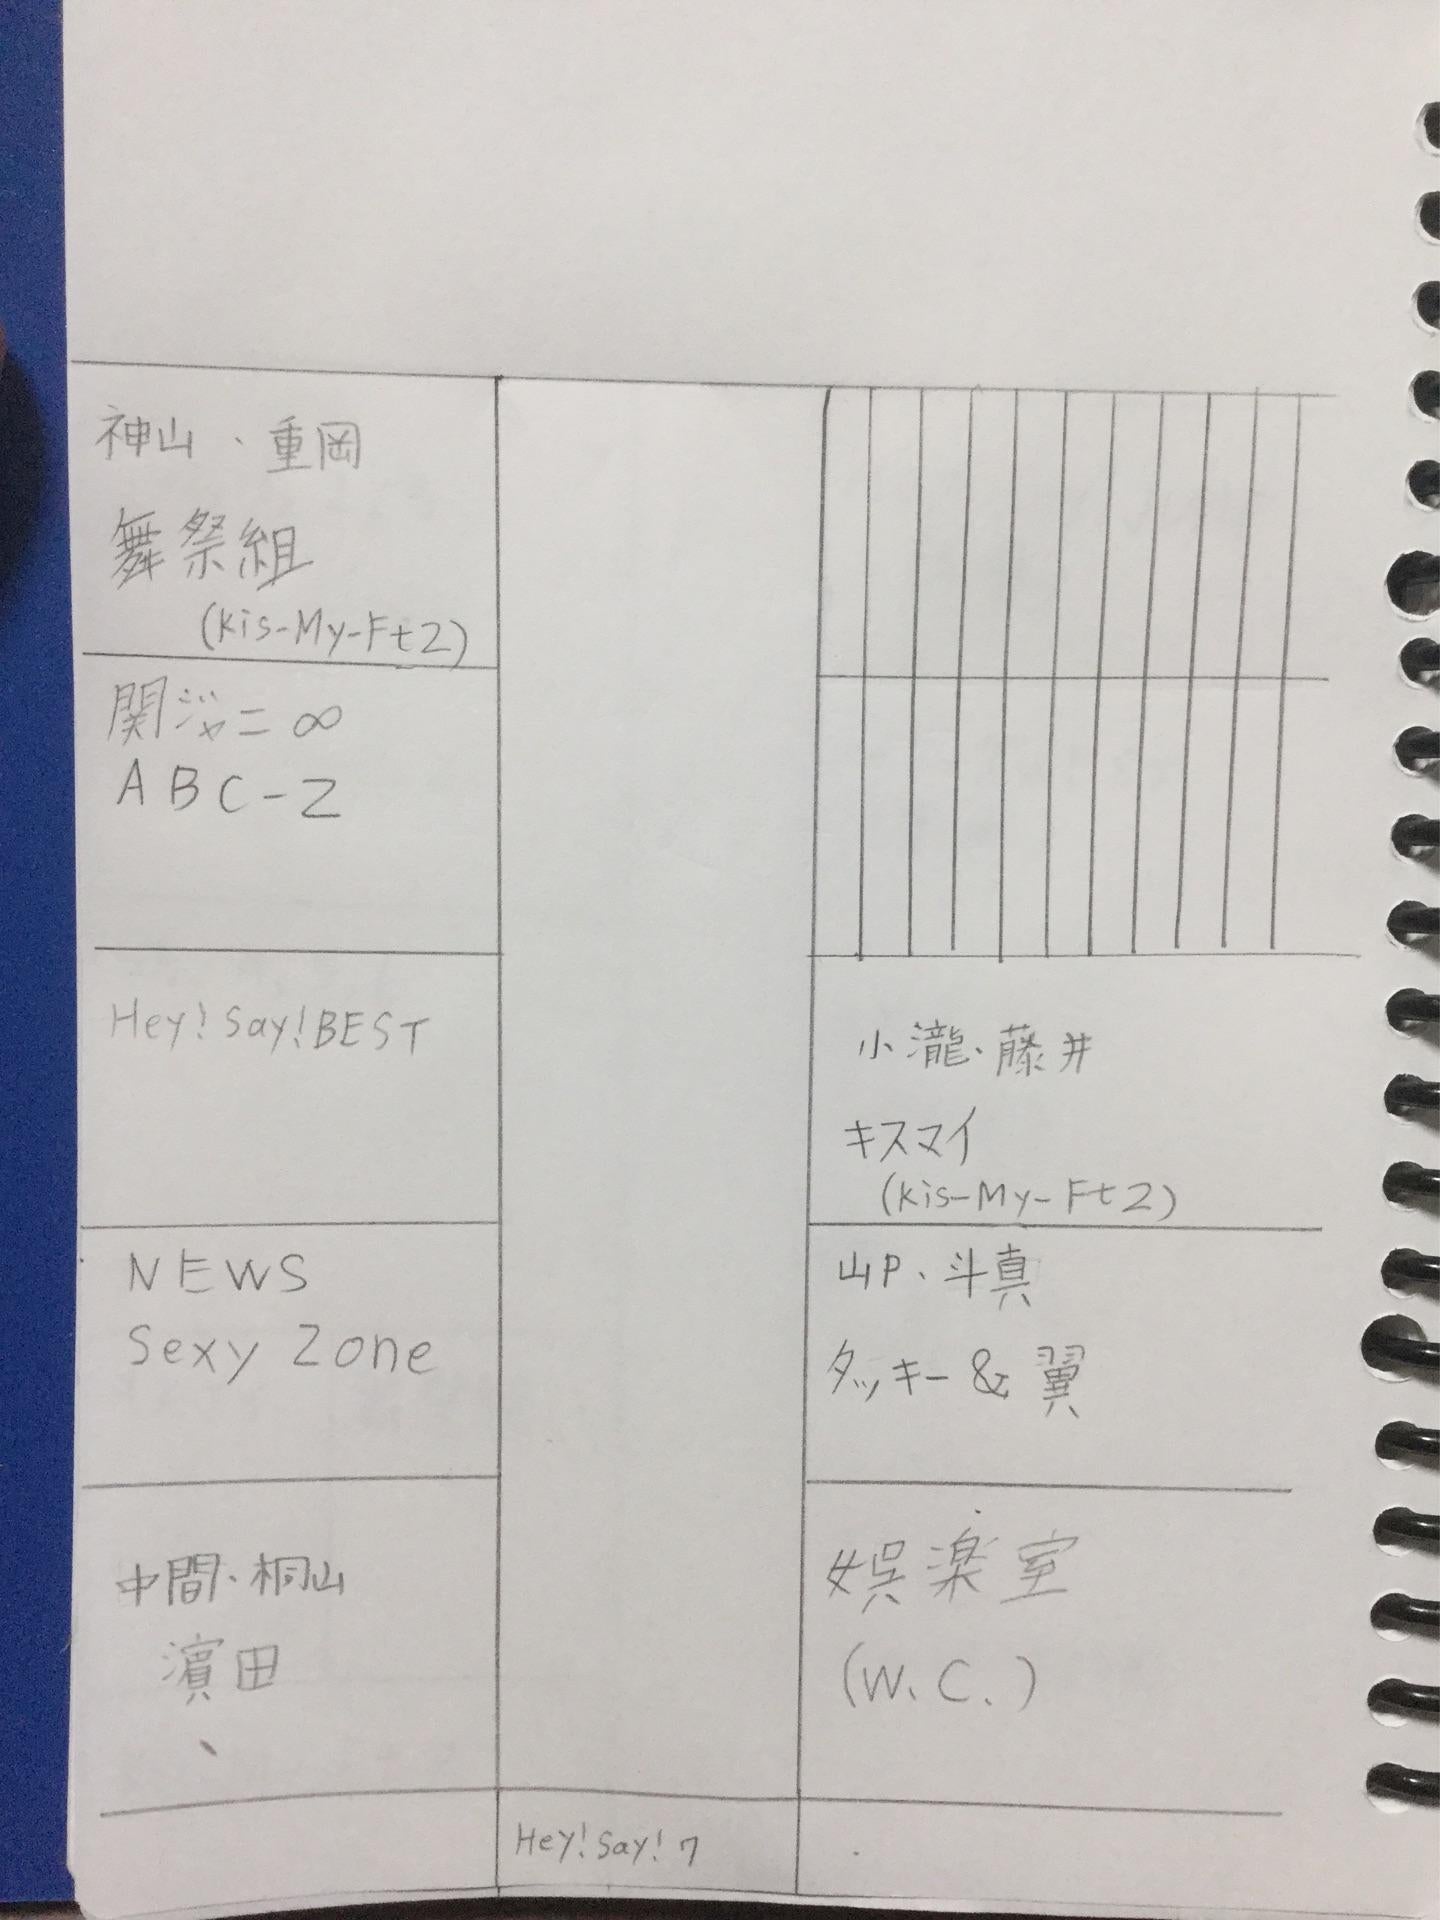 神山、重岡
舞祭組
(kis-My-Ft2)
関ジャニ∞
ABC-Z
Hey! Say! BEST
NEWS
Sexy Zone
中間、桐山
濵田
小瀧、藤井
キスマイ
(kis-My-Ft2)
山P、斗真
タッキー&翼
娯楽室
(W.C.)
Hey! Say! 7